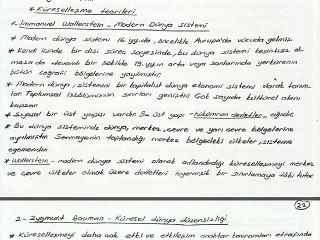 * Küreselleşme teorileri
1- Immanuel Wallerstein - Modern Dünya Sistemi
* Modern dünya sistemi 16. yy.da, öncelikle Avrupa'da vücuda gelmiş.
* Kendi içinde bir dizi süreç sayesinde, bu dünya sistemi kesintisiz ol-
masa da devamlı bir şekilde 19. yy.ın orta veya sonlarında yerkürenin
bütün coğrafi bölgelerine yayılmıştır.
* Modern dünya, sistemini bir kapitalist dünya ekonomi sistemi olarak tanım-
lar. Toplumsal işbölümünün sınırları geniştir. Çok sayıda kültürel alanı
kapsar.
* Siyasal bir üst yapısı vardır. Bu üst yapı "hükümran devletler" ağıdır.
* Bu dünya sisteminde dünya, merkez, çevre ve yarı çevre bölgelerine
ayrılmıştır. Sermayenin toplandığı merkez bölgedeki ülkeler, sisteme
egemendir.
* Wallerstein - modern dünya sistemi olarak adlandırdığı küreselleşmeyi merkez
ve çevre ülkeler olmak üzere devletleri hiyerarşik bir sınırlamaya tâbi tutar.
22
2- Zygmunt Bauman - Küresel dünya düzensizliği
* Küreselleşmeyi daha çok etki ve etkileşim anahtar kavramları etrafında